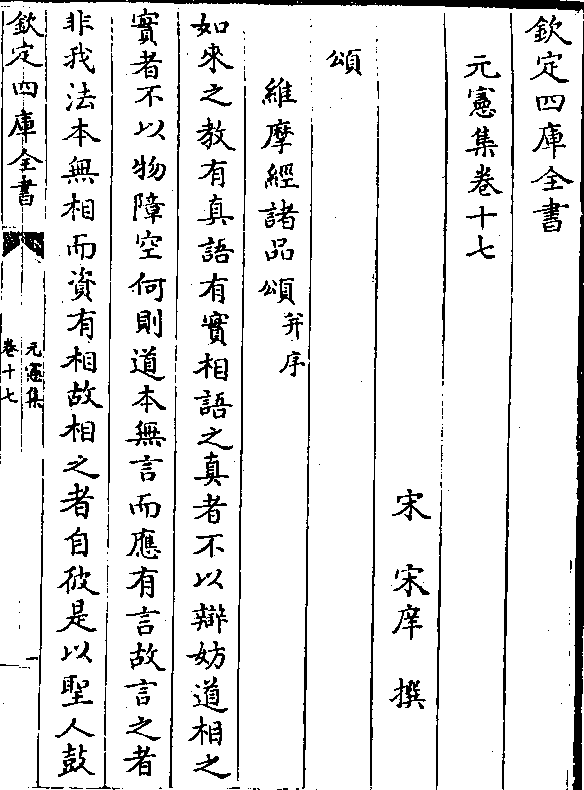 欽定四庫全書
元憲集卷十七
宋 宋庠 撰
頌
維摩經諸品頌并序
如來之教有真語有實相語之真者不以辯妨道相之
實者不以物障空何則道本無言而應有言故言之者
非我法本無相而資有相故相之者自彼是以聖人鼓
欽定四庫全書
元憲集
卷十七
一